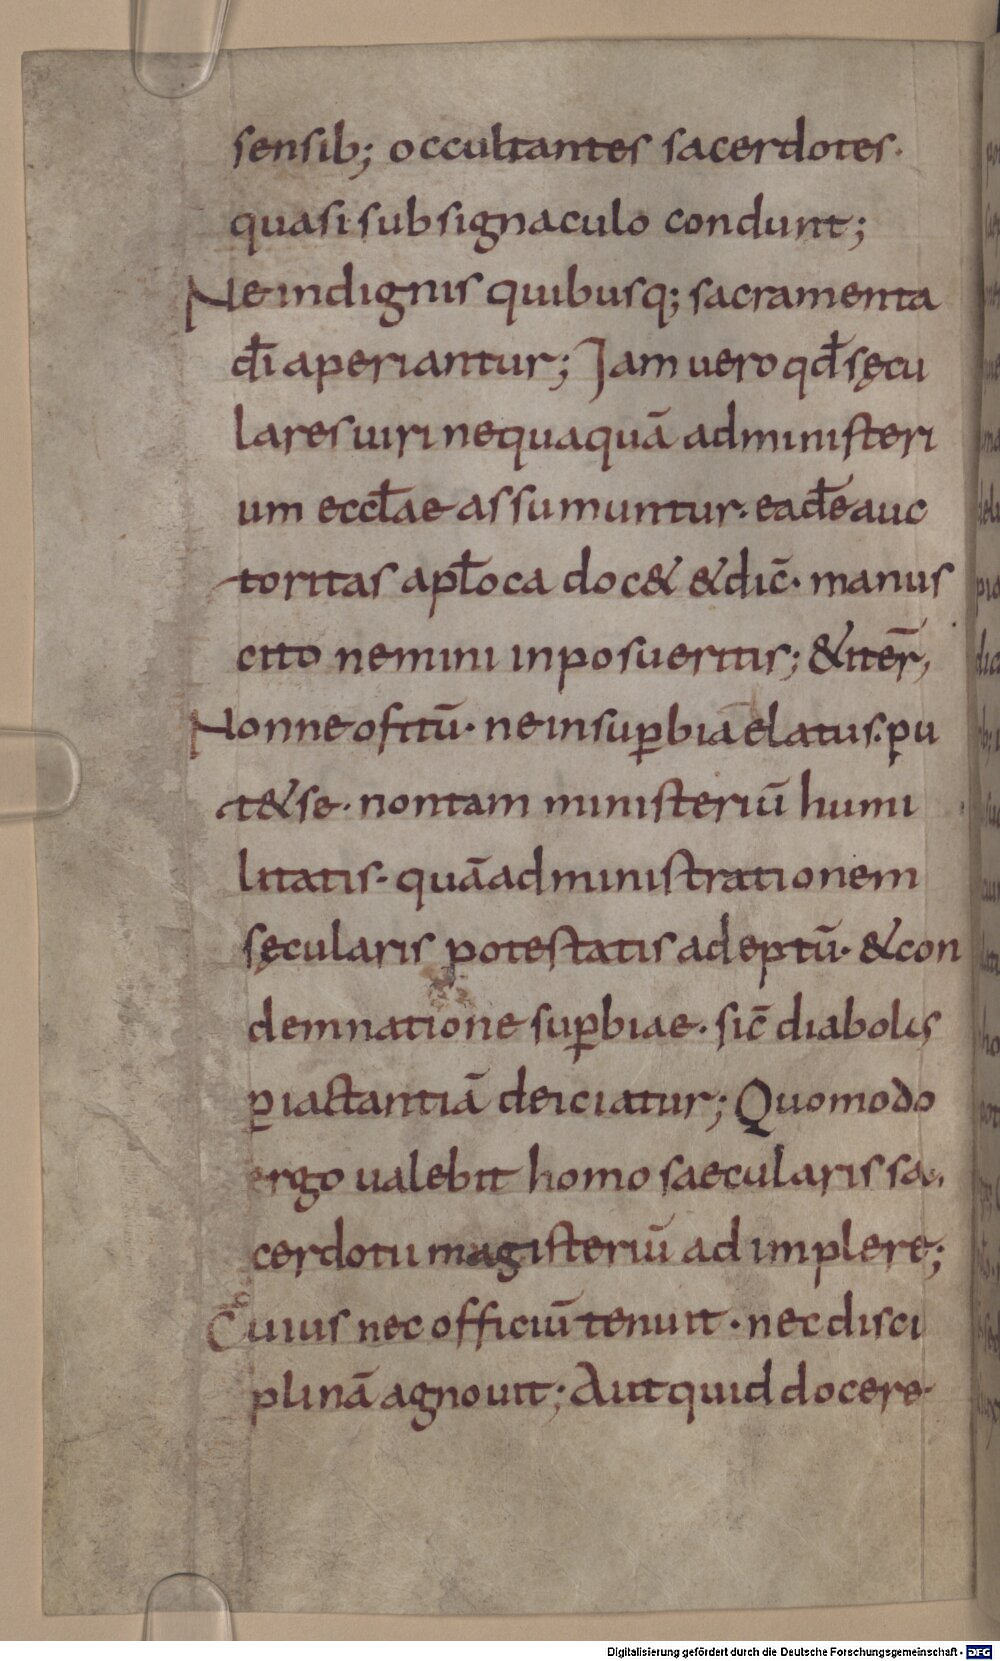 sensib; occultantes sacerdotes.
quasi sub signaculo condunt;
Ne indignis quibusq; sacramenta
dī aperiantur; Jam uero qđ sęcu
lares uiri nequaquā ad ministeri
um eccłae assumuntur. eadē auc
toritas apłoca doc& & dic̄. manus
cito nemini inposueritis; & iter̄,
Non neofitū. ne in suꝑbia elatus. pu
t& se. non tam ministeriū humi
litatis. quā administrationem
sęcularis potestatis adeptū. & con
demnatione suꝑbiae. sic̄ diabolus
ꝑ iactantiā deiciatur; Quomodo
ergo ualebit homo saecularis sa
cerdotii magisteriū adimplere;
Cuius nec officiū tenuit. nec disci
plinā agnouit; Aut quid docere.
Digitalisierung gefördert durch die Deutsche Forschungsgemeinschaft - DFG